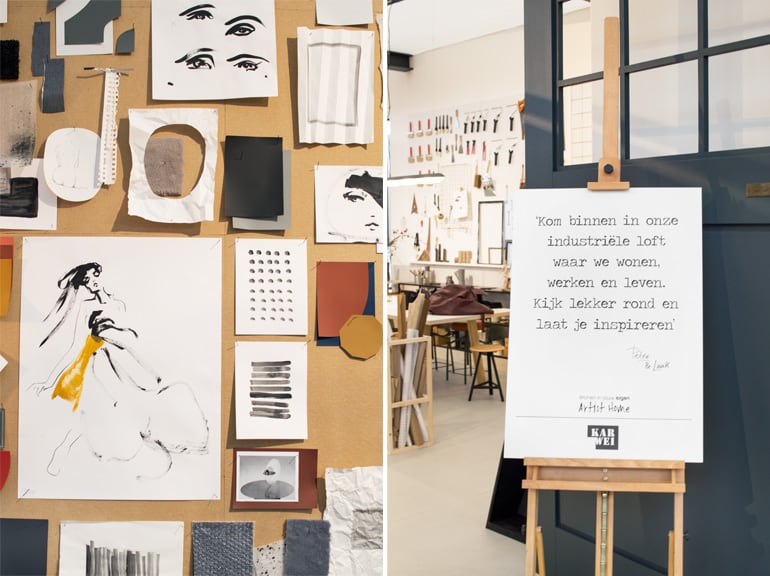 ‘Kom binnen in onze
industriële loft
waar we wonen,
werken en leven.
Kijk lekker rond en
laat je inspireren’
& Luuk
Wonen in jouw eigen
Artist Home
KAR
WEI